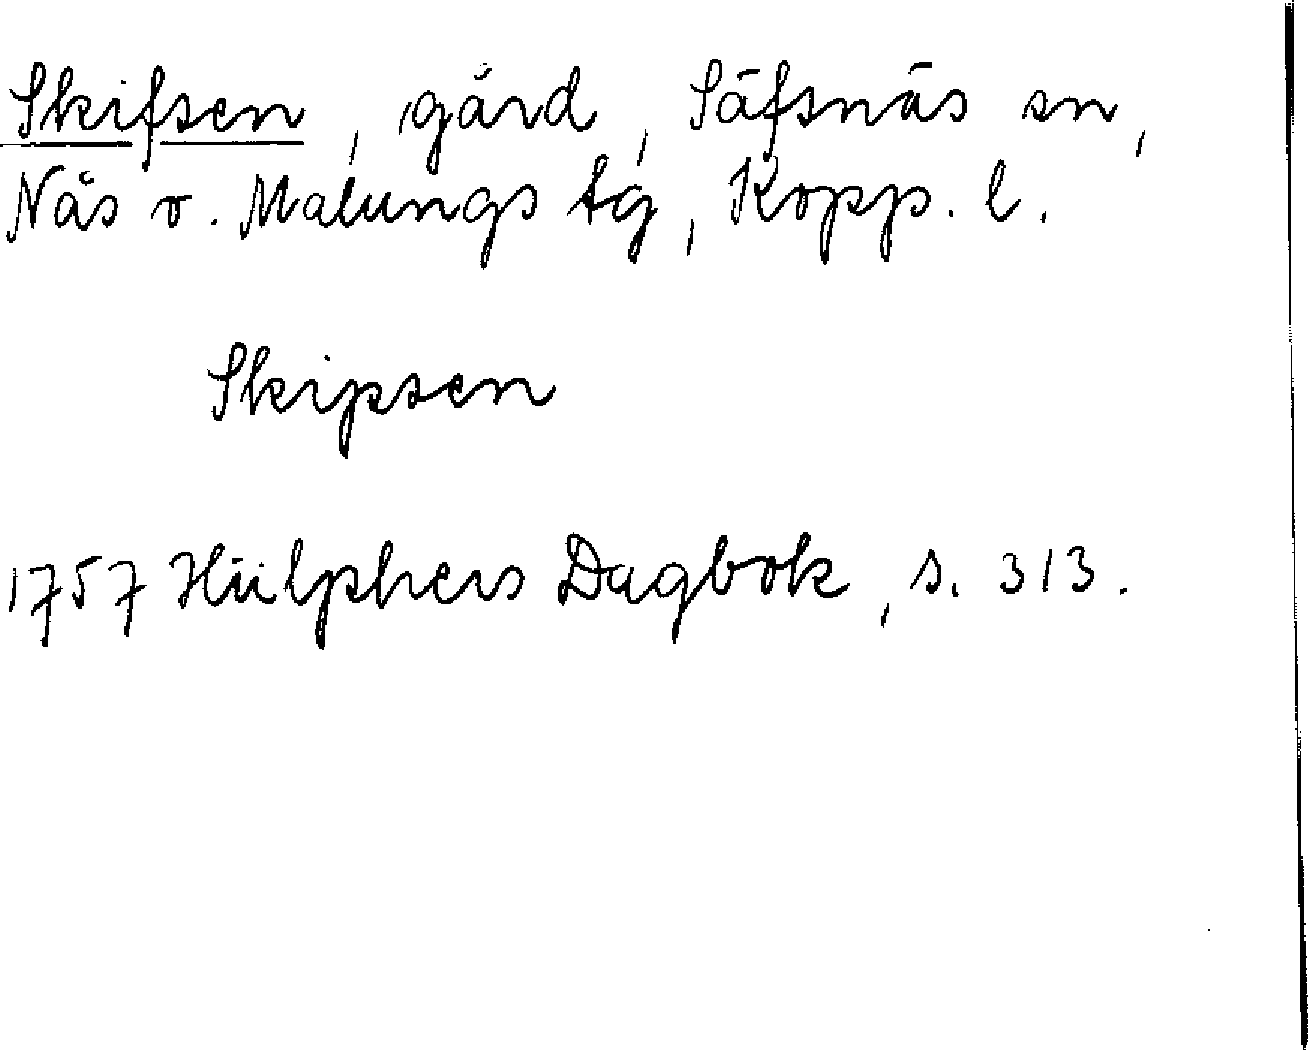 Skifsen, gård, Säfsnäs sn,
Näs o. Malungs tg, Kopp. l.
Skipsen
1757 Hülphers Dagbok, s. 313.